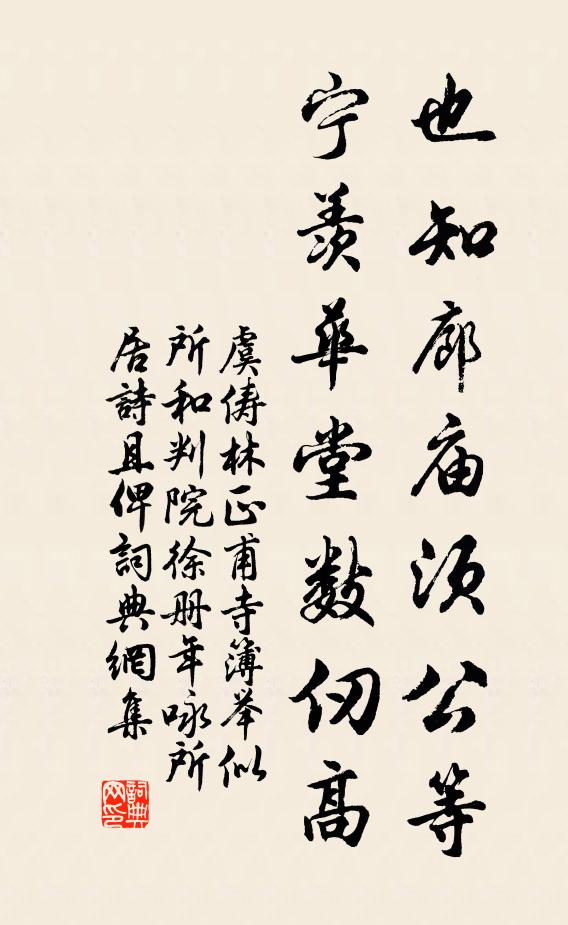 也知廊庙须公等
宁羡華堂数仞高
虞俦林正甫寺簿举似
所和判院徐册年咏所
居詩且俾詞典網集
詞典网印